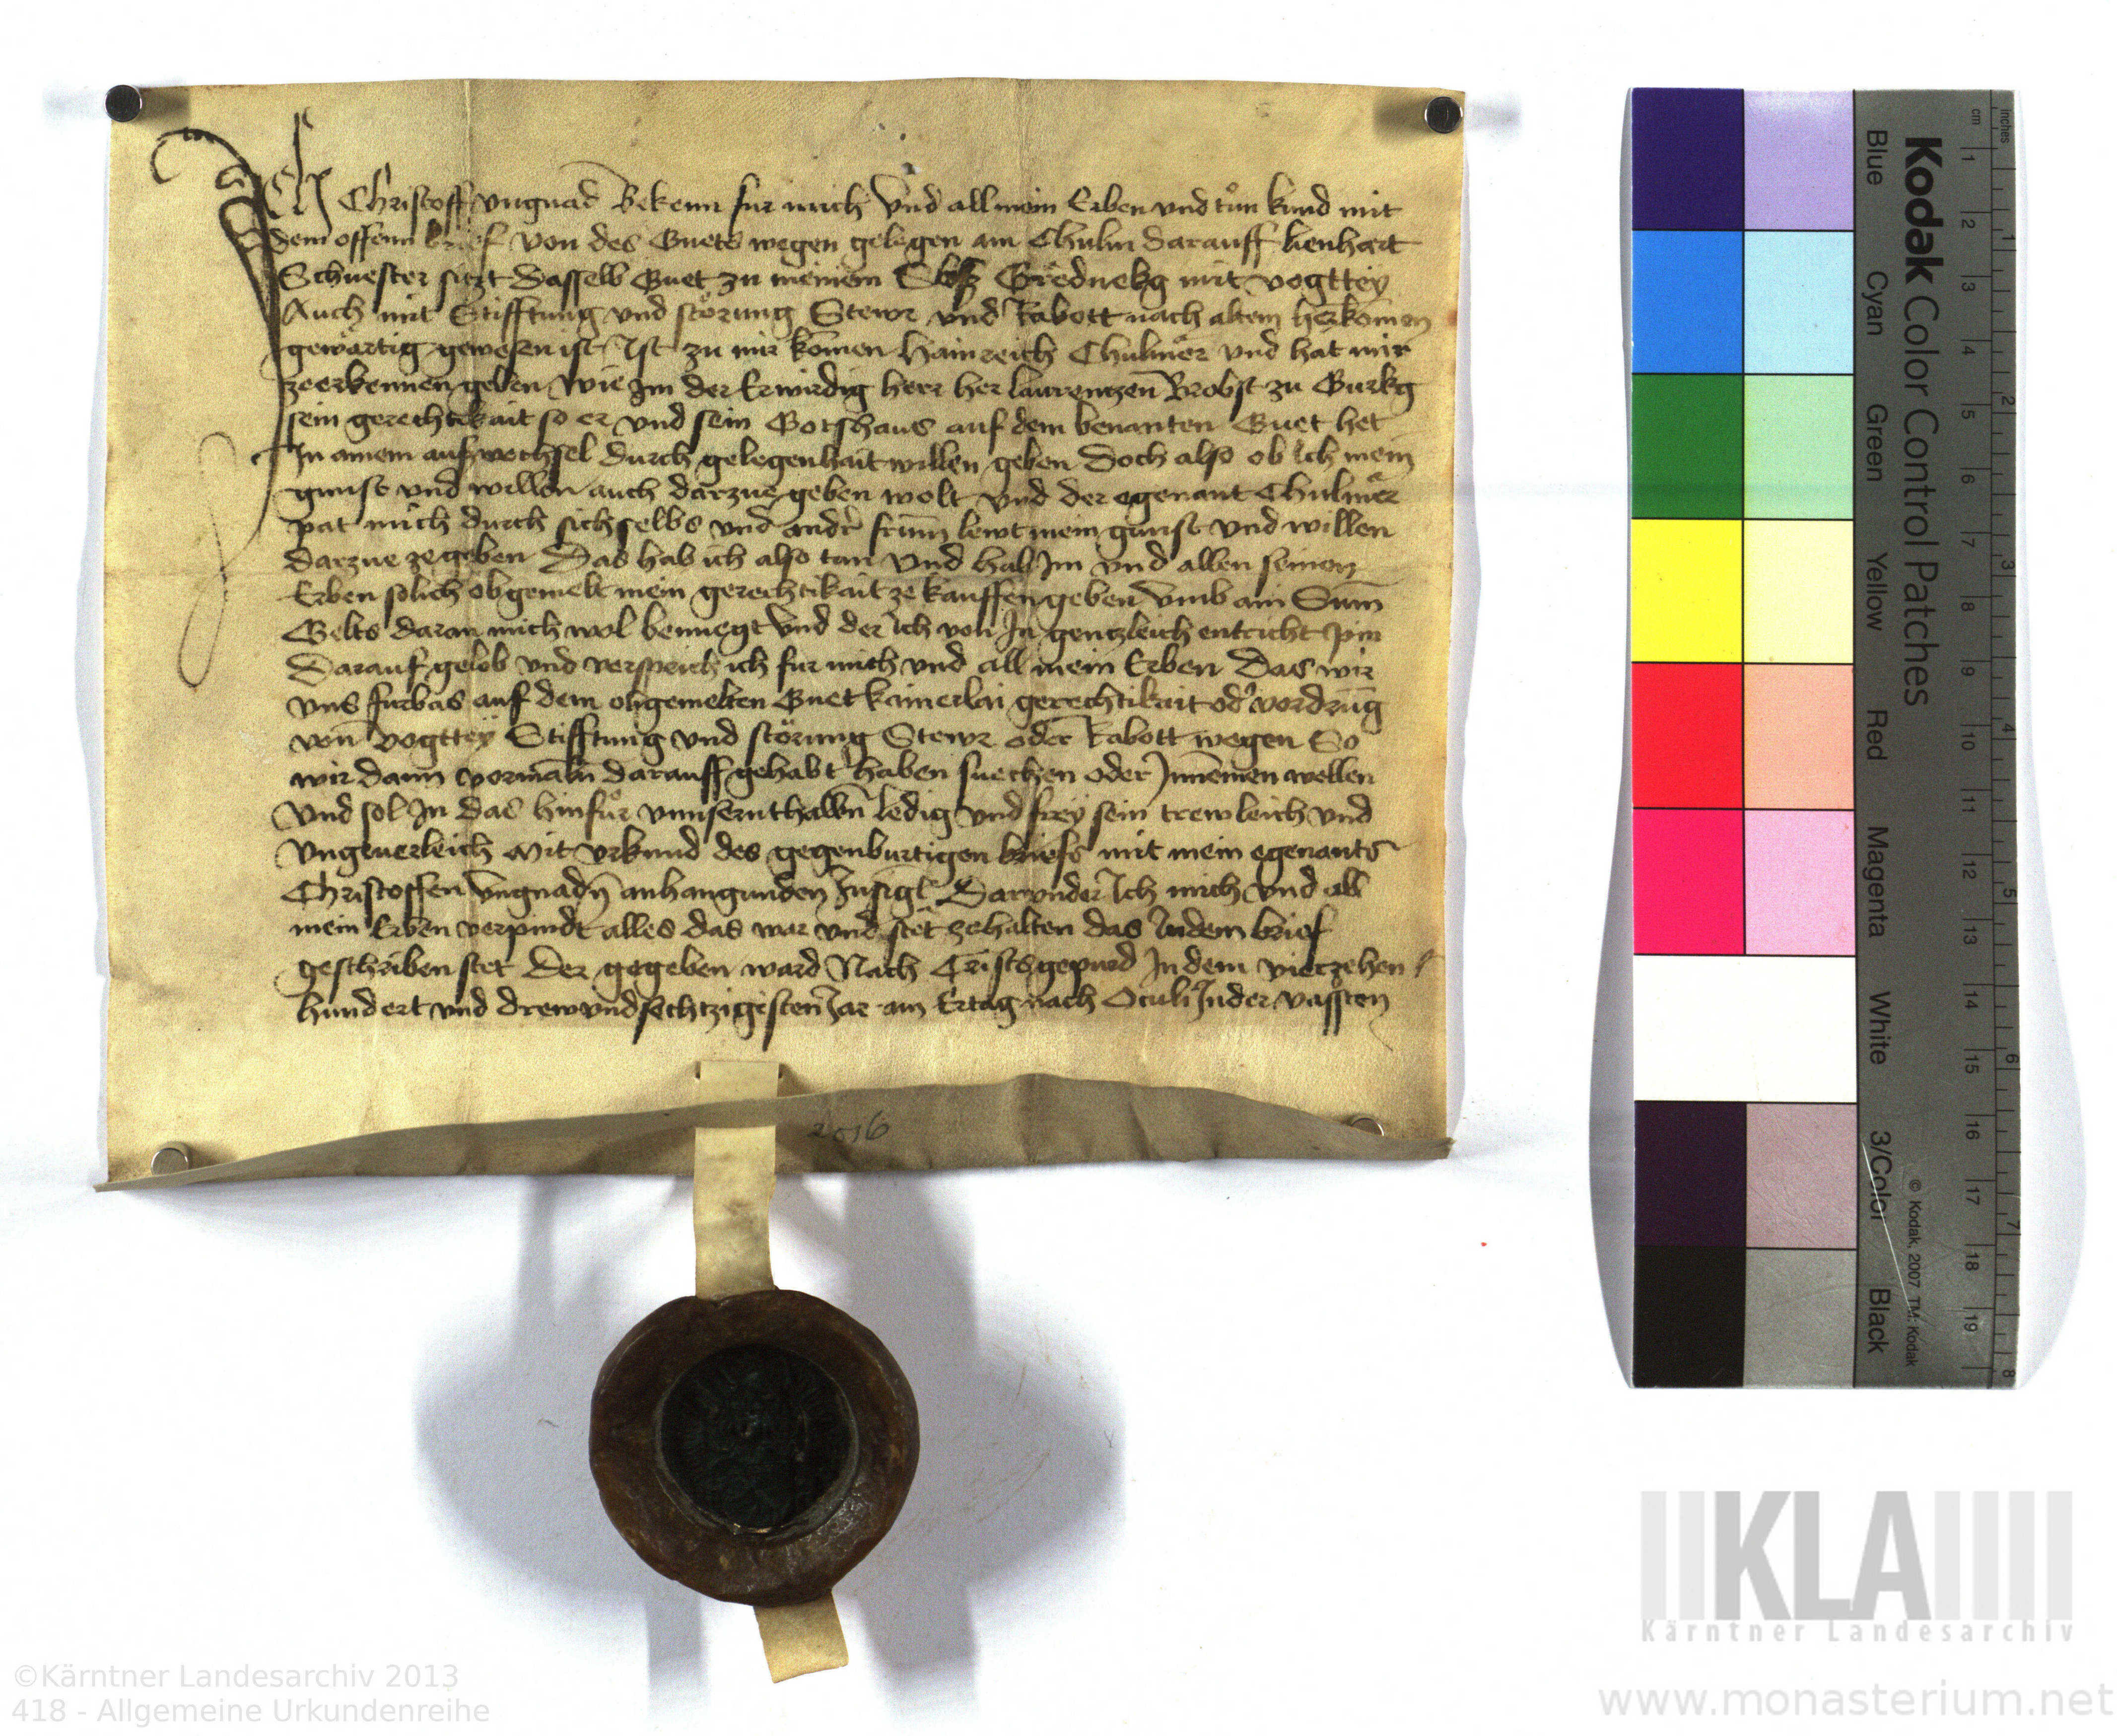 Ich Christoff Vngnad Bekenn fur mich Vnd all mein Erben vnd tůn kund mit
dem offenn brief Von des Guets wegen gelegen am Chulm darauff lienhart
Schuester siczt Dasselb Guet zu meinem Gslos Grednekg mit vogttey
Auch mit Stifftung vnd störung Stewr vnd Rabott nach altem herkomen
gewärtig gewesen ist Ist zu mir komen Hainreich Chulmer vnd hat mir
zeerkennen geben Wie Im der Erwirdig herr her laurenczen Brobst zu Gurkg
sein gerechtikait so er vnd sein Gotshaus auf dem benanten Guet het
In ainem aufwechsel durch gelegenhait willen geben Doch also ob Ich mein
gunst vnd willen auch darzue geben wolt Vnd der egenant Chulmer
pat mich durch sich selbs vnd andr frum lewt mein gunst vnd willen
darzue ze geben Das hab ich also tan Vnd hab Im vnd allen seinen
Erben solich obgemelt mein gerechtikait ze kauffen geben Vmb ain Sum
Gelts daran mich wol benuegt Vnd der Ich von In genczleich entricht pin
Darauf gelob vnd versprich ich fur mich vnd all mein Erben Das wir
vns furbas auf dem obgemelten Guet kainerlai gerechtikait od vordrung
von vogttey Stifftung vnd störung Stewr oder Rabott wegen So
wir dann vormaln darauff gehabt haben suechen oder Innemen wellen
Vnd sol In das hinfůr vnnsernthalbn ledig vnd frey sein trewleich vnd
Vngeuerleich Mit vrkund des gegenburtigen briefs mit mein egenants
Christoffen Vngnadn anhangunden Insigl Darvnder Ich mich vnd all
mein Erben verpindt alles das war vnd stet zehalten das Indem brief
geschriben stet Der gegeben ward Nach Cristsgepurd In dem vierzehen
hundert vnd drewvndsechtzigisten Jar am Ertag nach Oculi Inder vassten
2016
Kodak Color Control Patches
Blue Cyan Green Yellow Red Magenta White 3/Color Black
© Kodak, 2007 TM: Kodak
cm 1 2 3 4 5 6 7 8 9 10 11 12 13 14 15 16 17 18 19
inches 1 2 3 4 5 6 7 8
KLA
Kärntner Landesarchiv
©Kärntner Landesarchiv 2013
418 - Allgemeine Urkundenreihe
www.monasterium.net